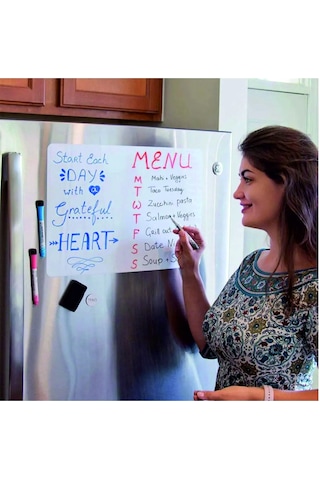 Start Each
DAY
with a
Grateful
HEART
MENU
M Mah + Veggies
T Taco Tuesday
W Zucchini pasta
T Salmon + Veggies
F Grill out
S Date N
S Soup + S